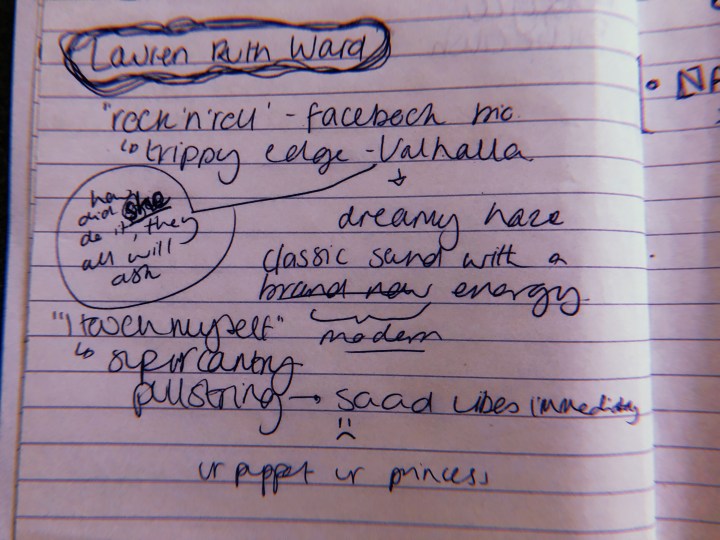 Lauren Ruth Ward
"rock'n'roll' - facebook bio.
↳ trippy edge - Valhalla
how
did she
do it, they
all will
ask
dreamy haze
classic sound with a
brand new energy.
modern
"I touch myself"
↳ supercanting
pullstring → saad vibes immediately
ur puppet ur princess
• NA